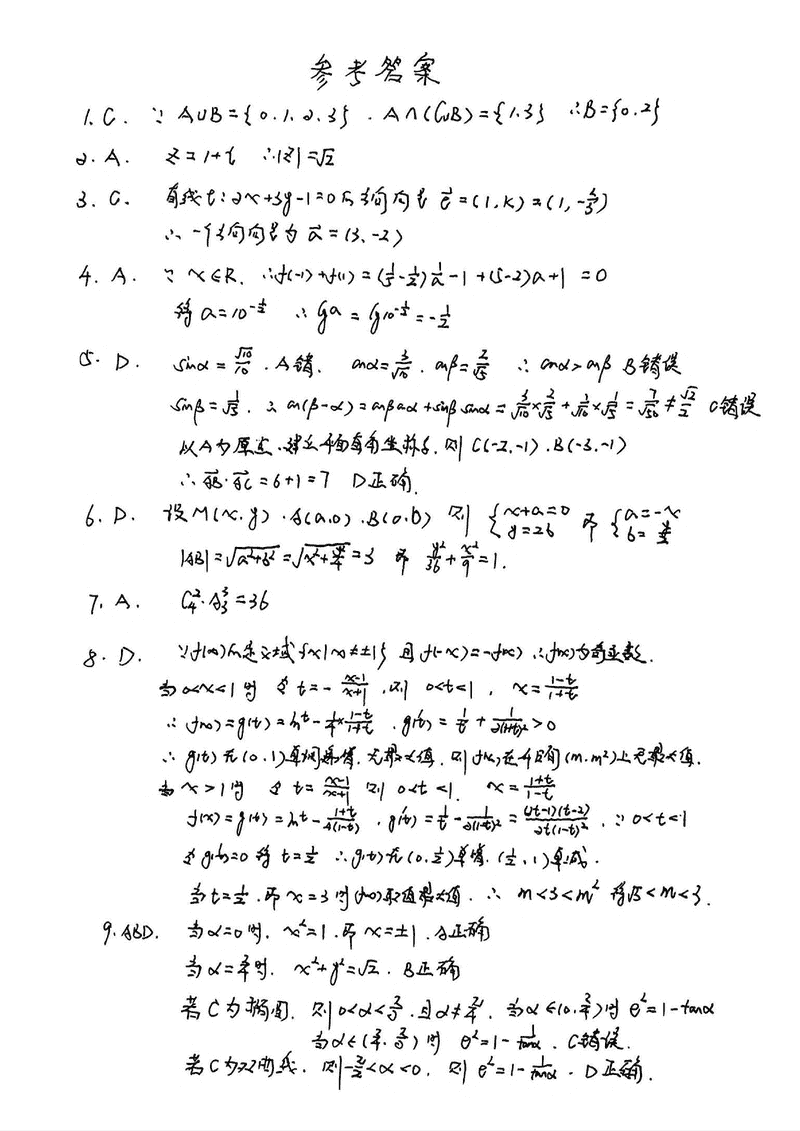 参考答案
1. C. ∵ A∪B={0.1.2.3} . A∩(C∪B)={1.3} ∴B={0.2}
2. A. Z=1+i ∴|Z|=√2
3. C. 直线l:2x+3y-1=0的方向向量 e⃗=(1,k)=(1,-2/3)
∴一个方向向量为 a⃗=(3,-2)
4. A. ∵ x∈R. ∴f(-1)+f(1)=(1/5-1/2)1/a-1+(5-2)a+1=0
得a=10^(-1/2) ∴lga=lg10^(-1/2)=-1/2
5. D. sinα=√10/10 . A错. cosα=3/√10 . cosβ=2/√5 ∴ cosα>cosβ B错误
sinβ=1/√5 . ∴cos(β-α)=cosβcosα+sinβsinα=3/√10×2/√5+1/√10×1/√5=7/√50≠√2/2 C错误
以A为原点.建立平面直角坐标系.则C(-2,-1).B(-3,-1)
∴AB⃗·AC⃗=6+1=7 D正确.
6. D. 设M(x,y) . A(a,0) . B(0,b) 则 {x+a=0 y=2b 即 {a=-x b=y/2
|AB|=√(a²+b²)=√(x²+y²/4)=3 即 y²/36+x²/9=1.
7. A. C₄²·A₃³=36
8. D. ∵f(x)的定义域{x|x≠±1} 且f(-x)=-f(x) ∴f(x)为奇函数.
当0<x<1时 令t=-(x-1)/(x+1) .则 0<t<1 , x=(1-t)/(1+t)
∴f(x)=g(t)=lnt-1/4×(1-t)/(1+t) . g'(t)=1/t+1/(2(1+t)²)>0
∴g(t)在(0,1)单调递增.无最大值.则f(x)在(m,m²)上无最大值.
当x>1时 令t=(x-1)/(x+1) 则 0<t<1. x=(1+t)/(1-t)
f(x)=g(t)=lnt-(1+t)/(4(1-t)) . g'(t)=1/t-1/(2(1-t)²)=(2t-1)(t-2)/(2t(1-t)²) . ∵0<t<1
令g'(t)=0 得t=1/2 ∴g(t)在(0,1/2)单增.(1/2,1)单减.
当t=1/2.即x=3时f(x)取值最大值. ∴ m<3<m² 得√3<m<3.
9. ABD. 当α=0时. x²=1.即x=±1.A正确
当α=π/4时. x²+y²=√2 . B正确
若C为椭圆.则0<α<π/2.且α≠π/4. 当α∈(0,π/4)时 e²=1-tanα
当α∈(π/4,π/2)时 e²=1-1/tanα . C错误.
若C为双曲线.则-π/2<α<0. 则 e²=1-1/tanα . D正确.